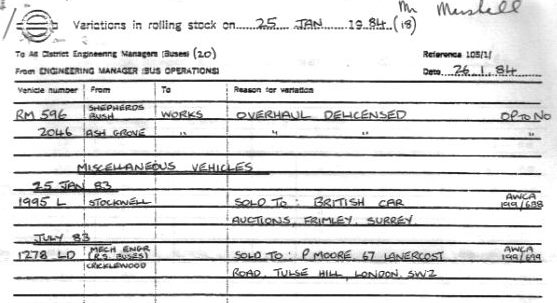 Mr Marshall
Variations in rolling stock on 25 JAN 1984 (18)
To All District Engineering Managers (Buses) (20) Reference 105/1/
From ENGINEERING MANAGER (BUS OPERATIONS) Date 26.1.84
Vehicle number From To Reason for variation
RM 596 SHEPHERDS BUSH WORKS OVERHAUL DELICENSED OP to NO
2046 ASH GROVE " " " "
MISCELLANEOUS VEHICLES
25 JAN 83
1995 L STOCKWELL SOLD TO: BRITISH CAR AWCA
AUCTIONS, FRIMLEY, SURREY.
JULY 83
1278 LD MECH ENGR (R.S. BUSES) SOLD TO: P MOORE, 67 LANERCOST AWCA
CRICKLEWOOD ROAD, TULSE HILL, LONDON. SW2